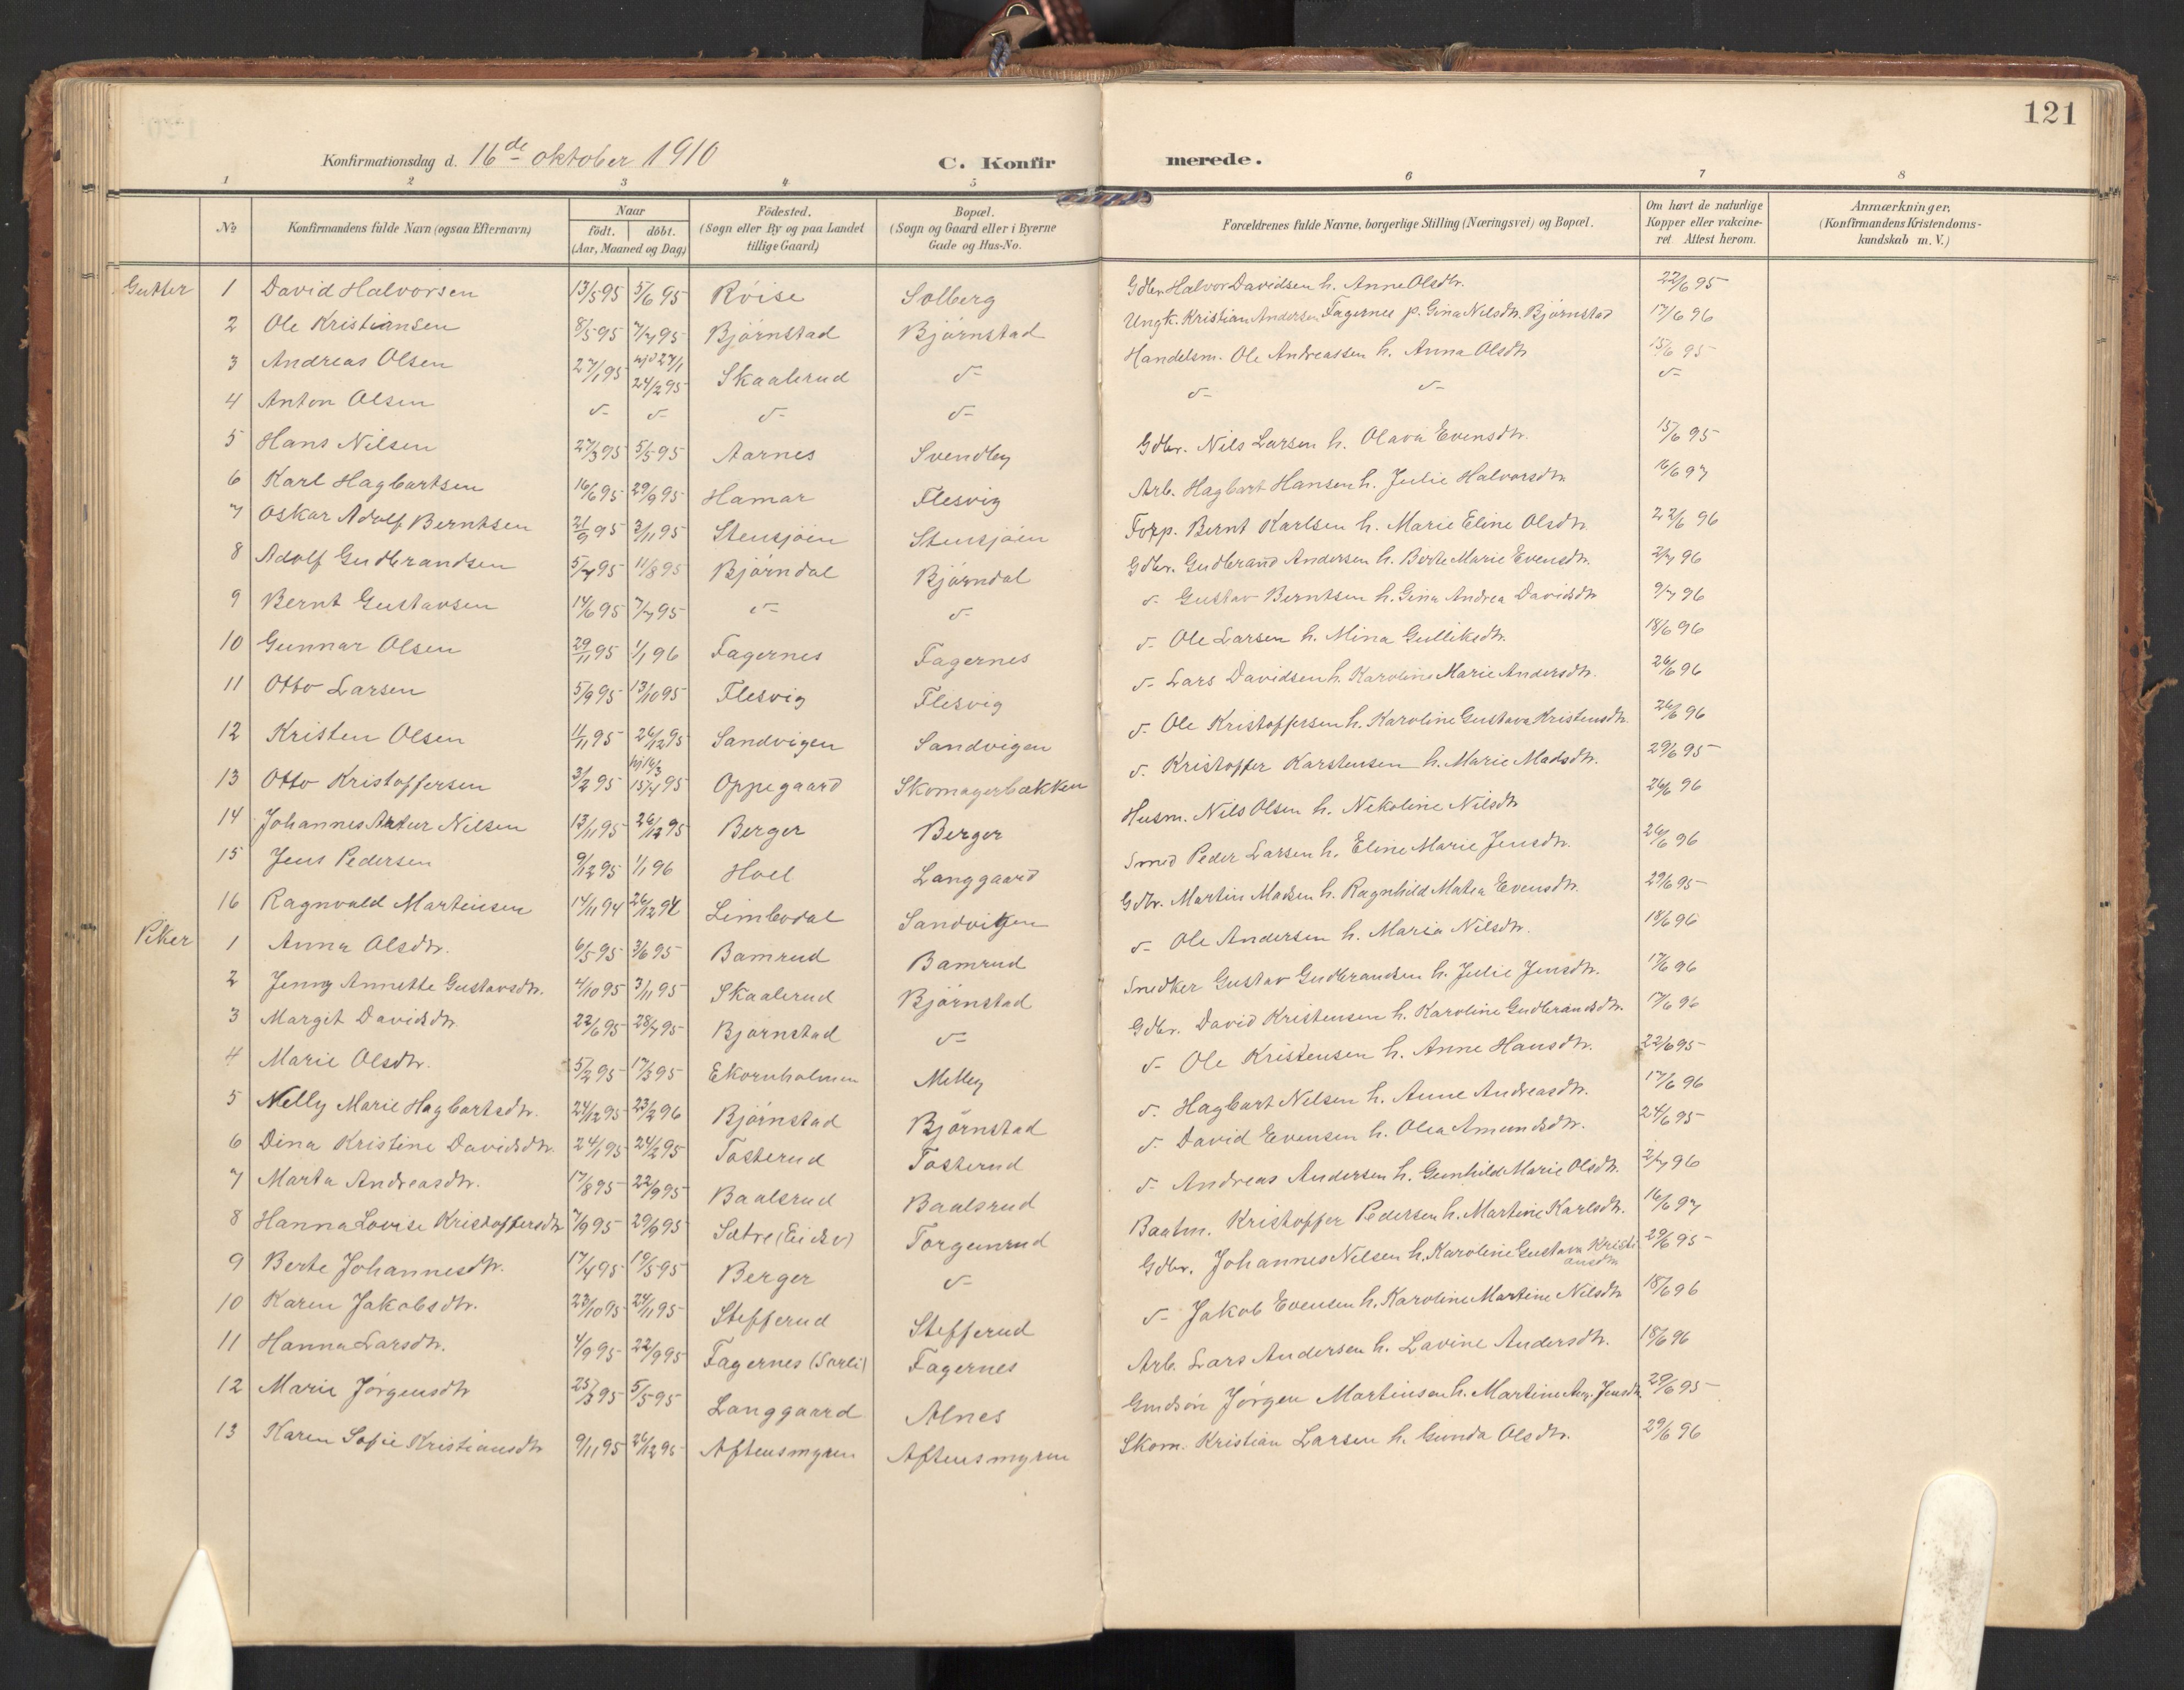 121
Konfirmationsdag d. 16de oktober 1910
C. Konfirmerede.
1 2 3 4 5 6 7 8
No
Konfirmandens fulde Navn (ogsaa Efternavn)
Naar
født. | døbt.
(Aar, Maaned og Dag)
Födested.
(Sogn eller By og paa Landet
tillige Gaard)
Bopæl.
(Sogn og Gaard eller i Byerne
Gade og Hus-No.
Forældrenes fulde Navne, borgerlige Stilling (Næringsvei) og Bopæl.
Om havt de naturlige
Kopper eller vakcine-
ret. Attest herom.
Anmærkninger,
(Konfirmandens Kristendoms-
kundskab m. V.)
Gutter 1 David Halvorsen 13/5 95 5/6 95 Röise Solberg Gdbr. Halvor Davidsen h. Anne Olsdtr. 22/6 95
2 Ole Kristiansen 8/5 95 7/7 95 Björnstad Björnstad Ungk. Kristian Andersen Fagernes p. Gina Nilsdtr. Björnstad 17/6 96
3 Andreas Olsen 27/1 95 hjd 27/1 24/2 95 Skaalerud d- Handelsm. Ole Andreassen h. Anna Olsdtr 15/6 95
4 Anton Olsen d- d- d- d- d- d- d-
5 Hans Nilsen 27/3 95 5/5 95 Aarnes Svendby Gdbr. Nils Larsen h. Olava Evensdtr. 15/6 95
6 Karl Hagbartsen 16/6 95 29/9 95 Hamar Flesvig Arb. Hagbart Hansen h. Julie Halvorsdtr 16/6 97
7 Oskar Adolf Berntsen 21/9 95 3/11 95 Stensjöen Stensjöen Forp. Bernt Karlsen h. Marie Eline Olsdtr. 22/6 96
8 Adolf Gudbrandsen 5/7 95 11/8 95 Björndal Björndal Gdbr. Gudbrand Andersen h. Berte Marie Evensdtr. 2/7 96
9 Bernt Gustavsen 14/6 95 7/7 95 d- d- d- Gustav Berntsen h. Gina Andrea Davidsdtr 9/7 96
10 Gunnar Olsen 29/11 95 1/1 96 Fagernes Fagernes d- Ole Larsen h. Mina Gulliksdtr. 18/6 96
11 Otto Larsen 5/9 95 13/10 95 Flesvig Flesvig d- Lars Davidsen h. Karoline Marie Andersdtr. 26/6 96
12 Kristen Olsen 11/11 95 26/12 95 Sandvigen Sandvigen d- Ole Kristoffersen h. Karoline Gustava Kristensdtr. 26/6 96
13 Otto Kristoffersen 3/2 95 hj 16/3 15/4 95 Oppegaard Skomagerbakken d- Kristoffer Karstensen h. Marie Madsdtr. 29/6 95
14 Johannes Artur Nilsen 13/11 95 26/12 95 Berger Berger Husm. Nils Olsen h. Nekoline Nilsdtr 26/6 96
15 Jens Pedersen 9/12 95 1/1 96 Hoel Langgaard Smed Peder Larsen h. Elene Marie Jensdtr. 26/6 96
16 Ragnvald Martinsen 14/11 94 26/12 94 Limbodal Sandvigen Gdbr. Martin Madsen h. Ragnhild Matea Evensdtr. 29/6 95
Piker 1 Anna Olsdtr. 6/5 95 3/6 95 Bamrud Bamrud d- Ole Andersen h. Maria Nilsdtr. 18/6 96
2 Jenny Annette Gustavsdtr. 4/10 95 3/11 95 Skaalerud Björnstad Snedker Gustav Gudbrandsen h. Julie Jensdtr. 17/6 96
3 Margit Davidsdtr 22/6 95 28/7 95 Björnstad d- Gdbr. David Kristensen h. Karoline Gudbrandsdtr. 17/6 96
4 Marie Olsdtr. 5/2 95 17/3 95 Ekornholmen Melby d- Ole Kristensen h. Anne Hansdtr. 22/6 95
5 Nelly Marie Hagbartsdtr. 24/12 95 23/2 96 Björnstad Björnstad d. Hagbart Nilsen h. Anne Andreasdtr. 17/6 96
6 Dina Kristine Davidsdtr. 24/1 95 24/2 95 Tosterud Tosterud d- David Evensen h. Olea Amundsdtr. 24/6 95
7 Marta Andreasdtr. 17/8 95 22/9 95 Baalsrud Baalsrud d- Andreas Andersen h. Gunhild Marie Olsdtr. 2/7 96
8 Hanna Lovise Kristoffersdtr 7/9 95 29/9 95 Sætre (Eidsv) Torgunrud Baatm. Kristoffer Pedersen h. Martine Karlsdtr. 16/6 97
9 Berte Johannesdtr. 17/4 95 19/5 95 Berger d- Gdbr. Johannes Nilsen h. Karoline Gustava Kristi ansdtr 29/6 95
10 Karen Jakobsdtr. 23/10 95 24/11 95 Stefferud Stefferud d- Jakob Evensen h. Karoline Martine Nilsdtr 18/6 96
11 Hanna Larsdtr. 4/9 95 22/9 95 Fagernes (Sorli) Fagernes Arb. Lars Andersen h. Lavine Andersdtr. 18/6 96
12 Marie Jörgensdtr 25/3 95 5/5 95 Langgaard Alnes Jörgen Martinsen h. Martine Jensdtr. 29/6 95
13 Karen Sofie Kristiansdtr 9/11 95 26/12 95 Aftensmyren Aftensmyren Skom. Kristian Larsen h. Gunda Olsdtr. 29/6 96